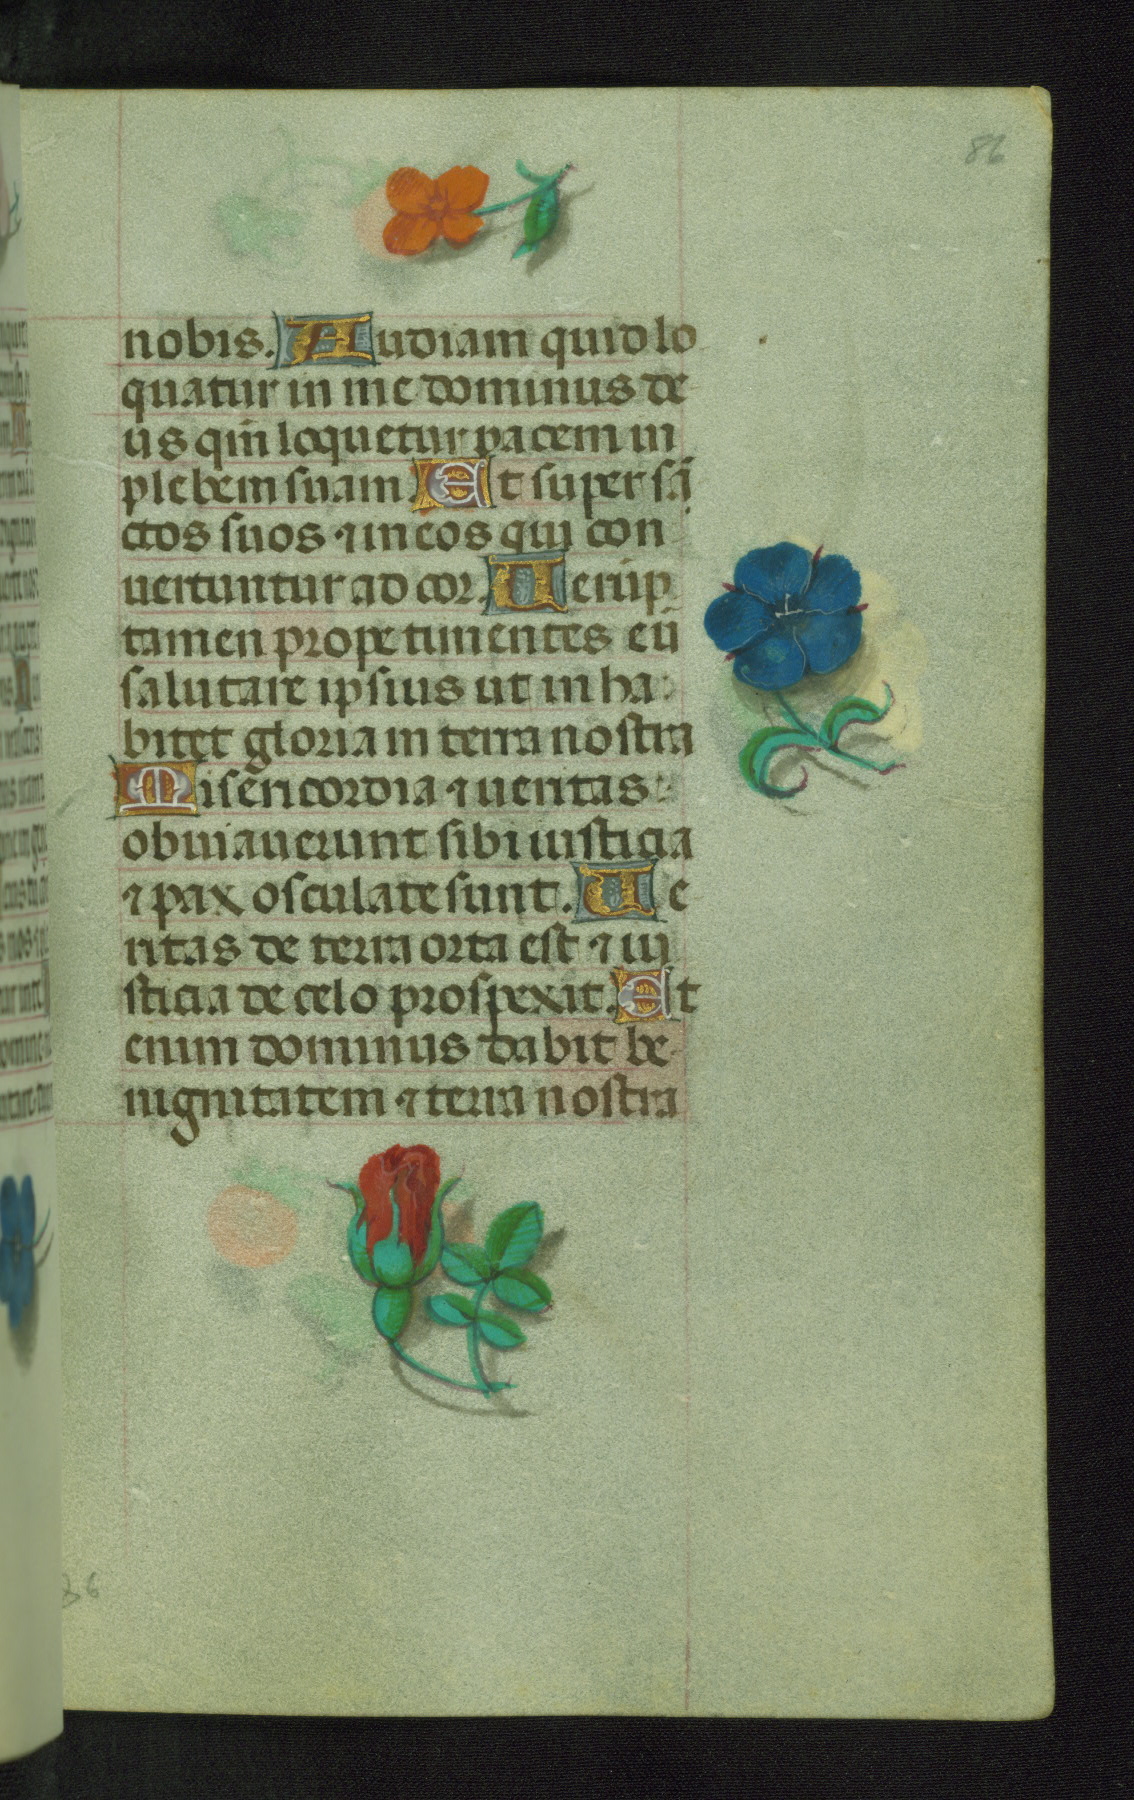 86
nobis. Audiam quid lo
quatur in me dominus de
us qm̄ loquetur pacem in
plebem suam Et super sā
ctos suos ⁊ in eos qui con
uertuntur ad cor. Uerūp
tamen prope timentes eū
salutare ipsius ut inha
bitet gloria in terra nostra
Misericordia ⁊ ueritas
obuiauerunt sibi iusticia
⁊ pax osculate sunt. Ue
ritas de terra orta est ⁊ iu
sticia de celo prospexit. Et
enim dominus dabit be
nignitatem ⁊ terra nostra